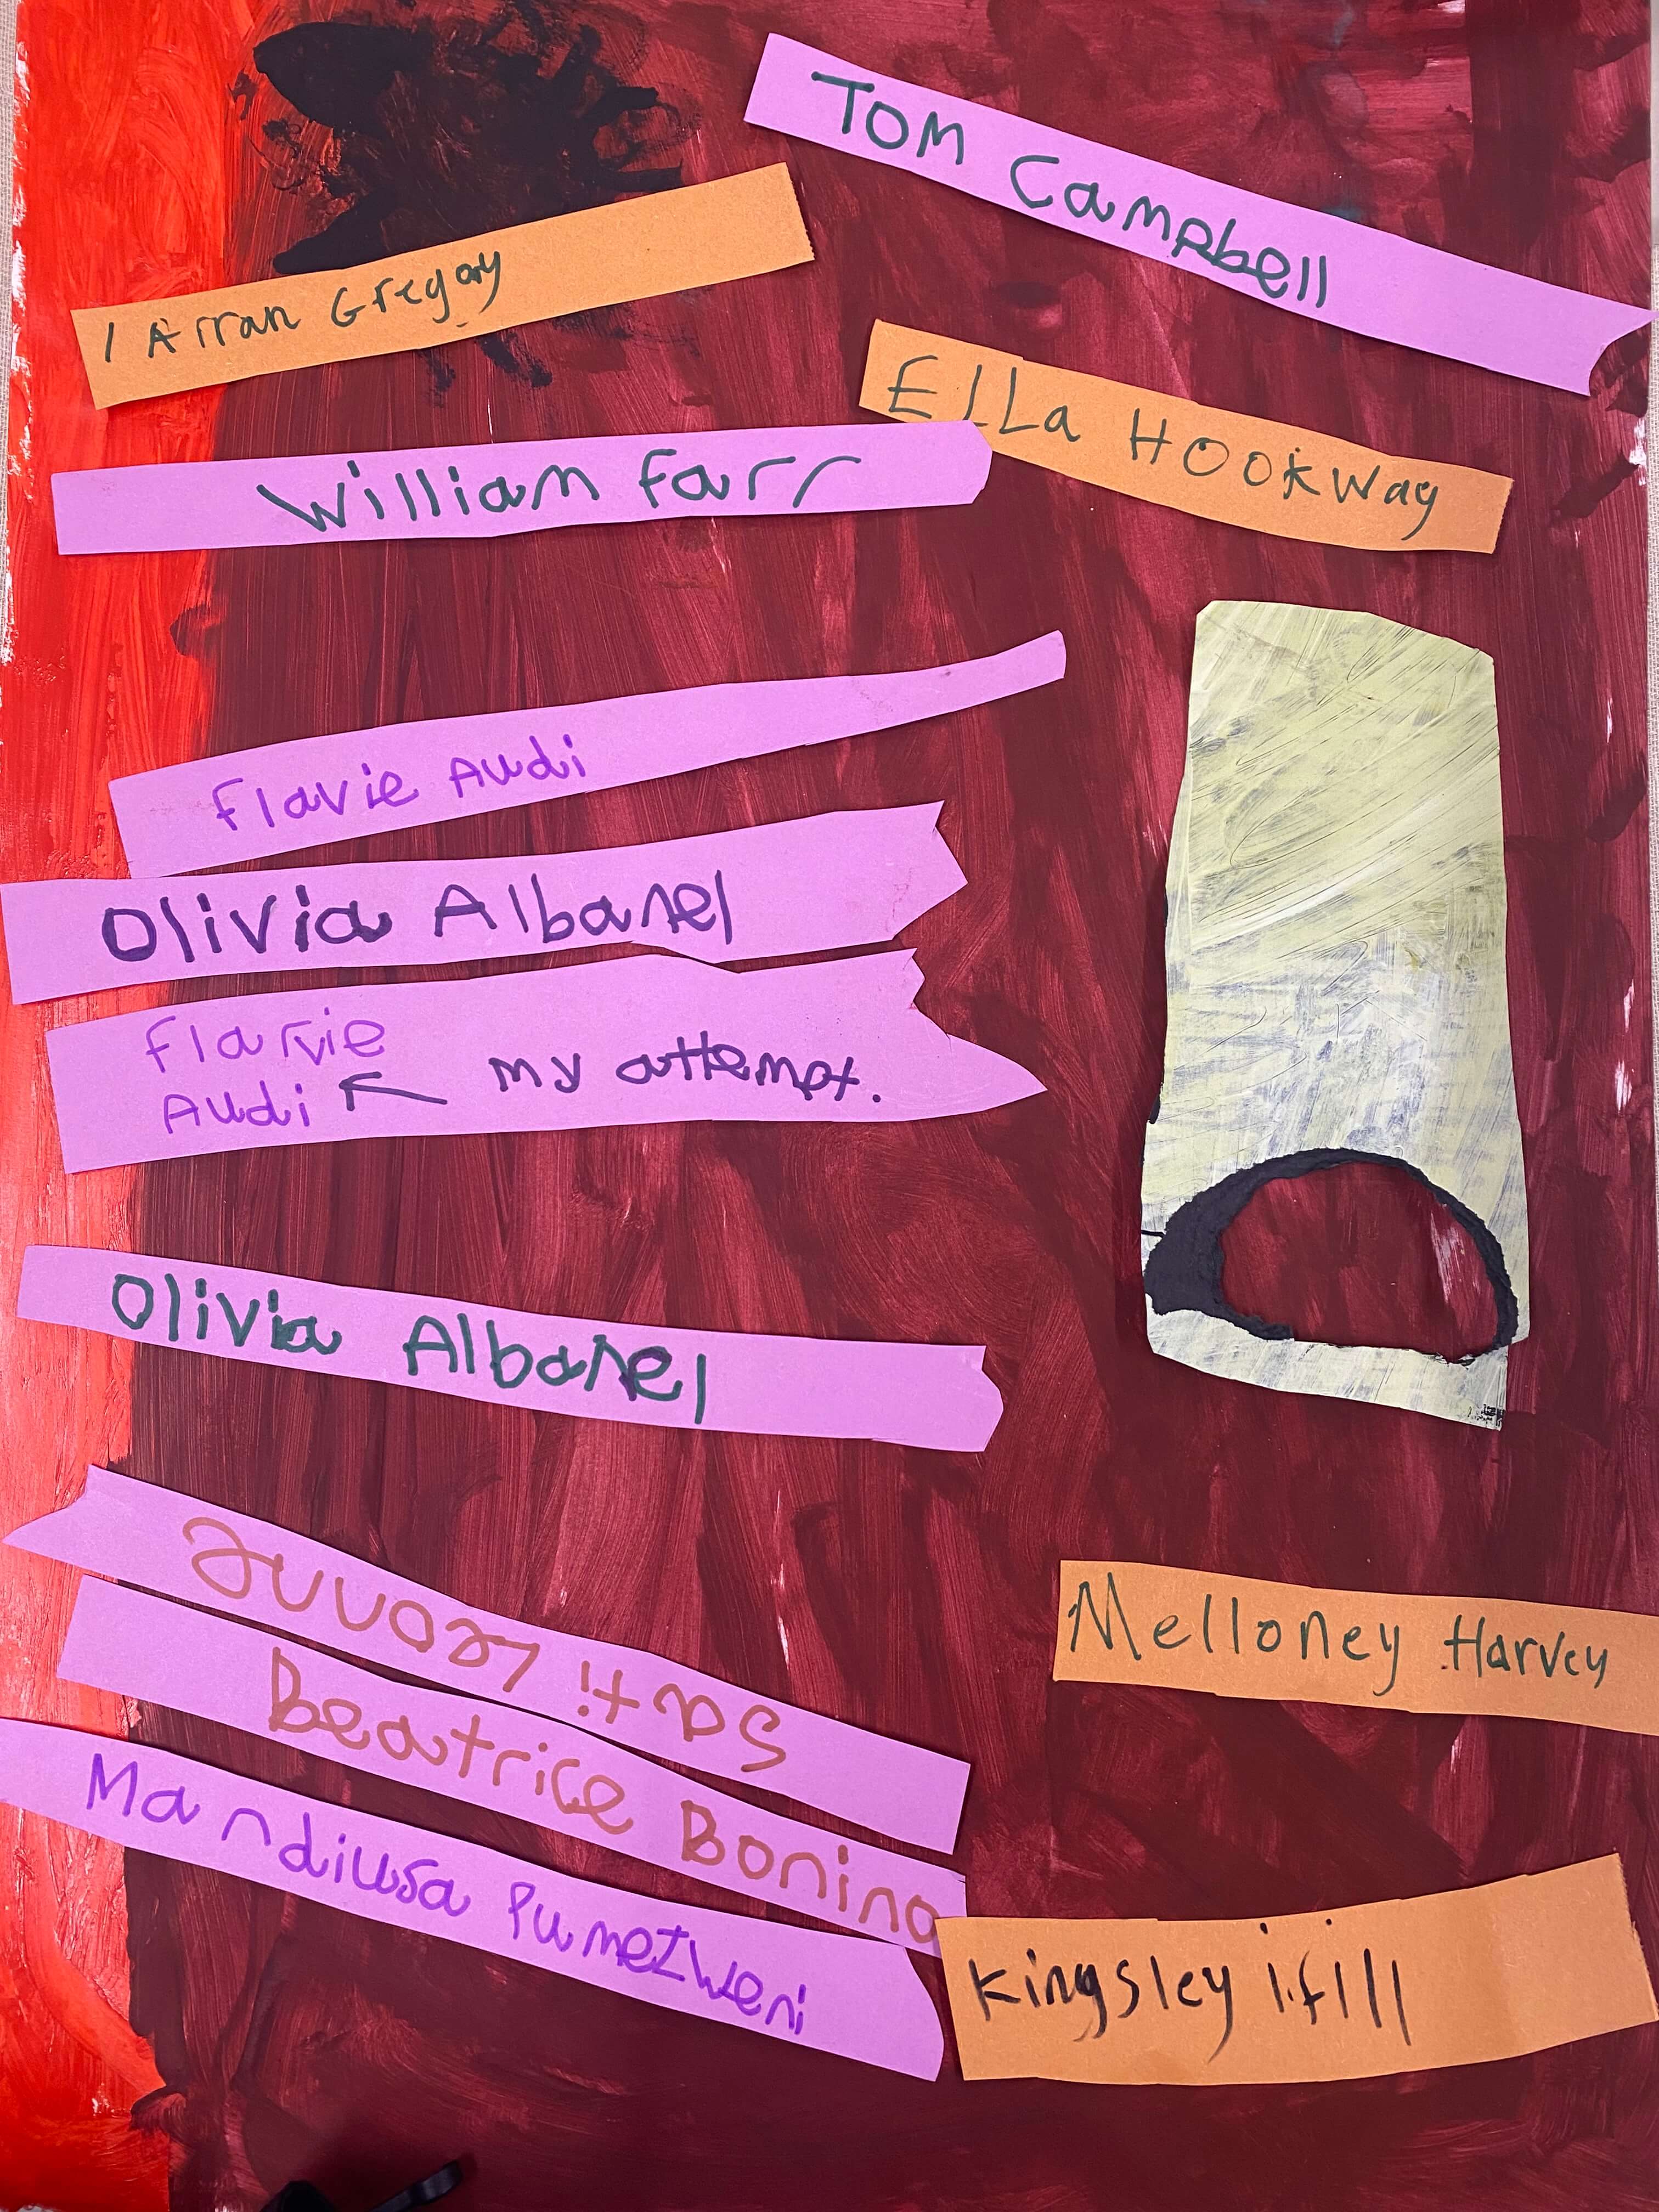 Tom Campbell
1 Arran Gregory
Ella Hookway
William Farr
Flavie Audi
Olivia Albanel
Flarvie
Audi ← my attempt.
Olivia Albanel
Sati Leonne
Beatrice Bonino
Melloney Harvey
Mandiwsa Pumezweni
Kingsley ifill